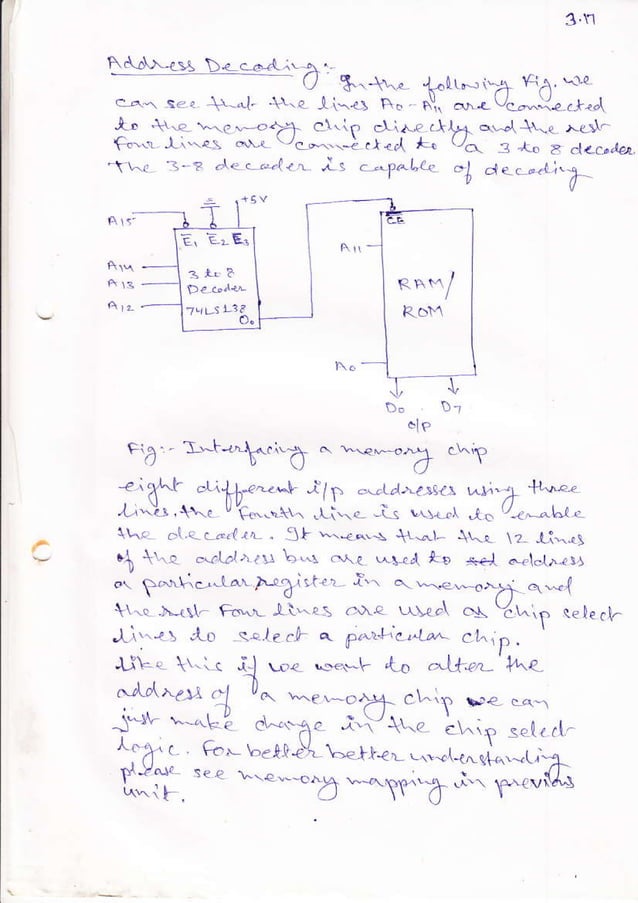 3.17
Address Decoding:-
In the following Fig. we
can see that the lines A0 - A11 are connected
to the memory chip directly and the rest
Four lines are connected to a 3 to 8 decoder
The 3-8 decoder is capable of decoding
+5V
A15
E̅1 E̅2 E3
C̅E̅
A11
A14
3 to 8
A13
Decoder
RAM/
A12
74LS138
ROM
O0
A0
D0 . D7
O/P
Fig:- Interfacing a memory chip
eight different i/p addresses using three
lines. The Fourth line is used to enable
the decoder. It means that the 12 lines
of the address bus are used to sel address
a particular register in a memory and
the rest Four lines are used as chip select
lines to select a particular chip.
Like this if we want to alter the
address of a memory chip we can
just make change in the chip select
logic. For better better understanding
please see memory mapping in previous
unit.